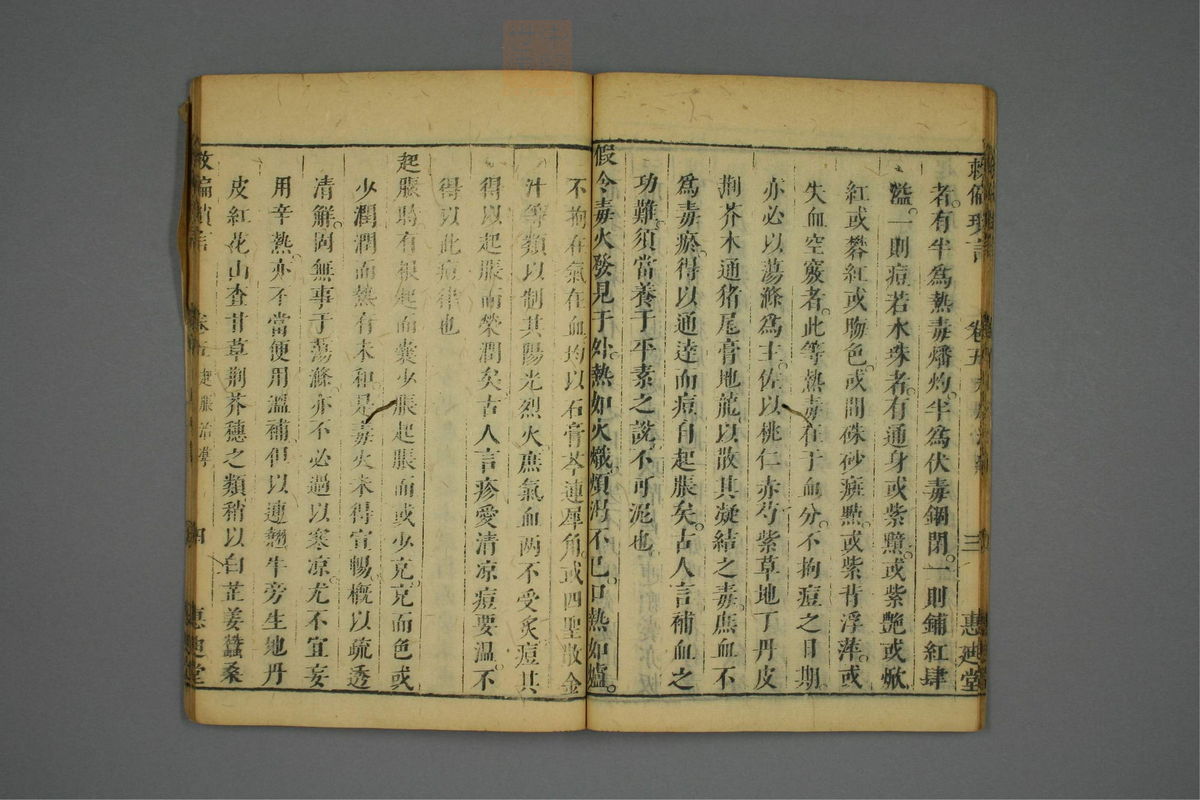 救偏瑣言 卷五 三 惠迪堂
者有半為熱毒燔灼半為伏毒錮閉一則鋪紅肆
溢一則痘若水珠者有通身或紫黯或紫艷或焮
紅或礬紅或眵色或間硃砂痣㸃或紫背浮萍或
失血空竅者此等熱毒在于血分不拘痘之日期
亦必以蕩滌為主佐以桃仁赤芍紫草地丁丹皮
荆芥木通猪尾膏地龍以散其凝結之毒庶血不
為毒瘀得以通達而痘自起脹矣古人言補血之
功難須當養于平素之説不可泥也
假令毒火發見于外熱如火熾煩渴不已口熱如爐
不拘在氣在血均以石膏芩連犀角或四聖散金
汁等類以制其陽光烈火庶氣血两不受炙痘其
得以起脹而榮潤矣古人言疹愛清凉痘要温不
得以此痘律也
起脹時有根起而囊少脹起脹而或少克克而色或
少潤潤而熱有未和是毒火未得宣暢概以疏透
清解固無事于蕩滌亦不必過以寒凉尤不宜妄
用辛熱亦不當便用溫補但以連翹牛旁生地丹
皮紅花山查甘草荆芥穗之類稍以白芷姜蠶桑
救偏瑣言 卷五 起脹治縳 四 惠迪堂